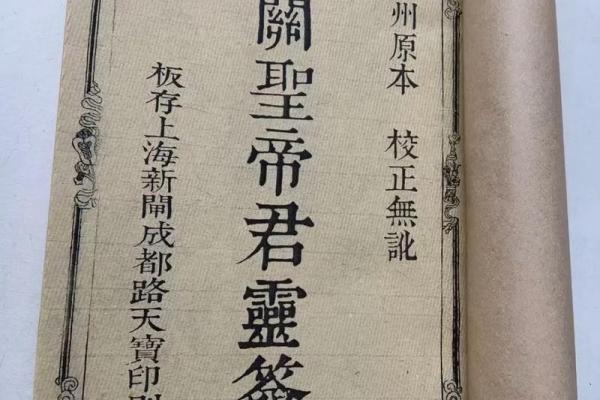 州原本 校正無訛
關聖帝君靈簽
板存上海新閘成都路天寶印